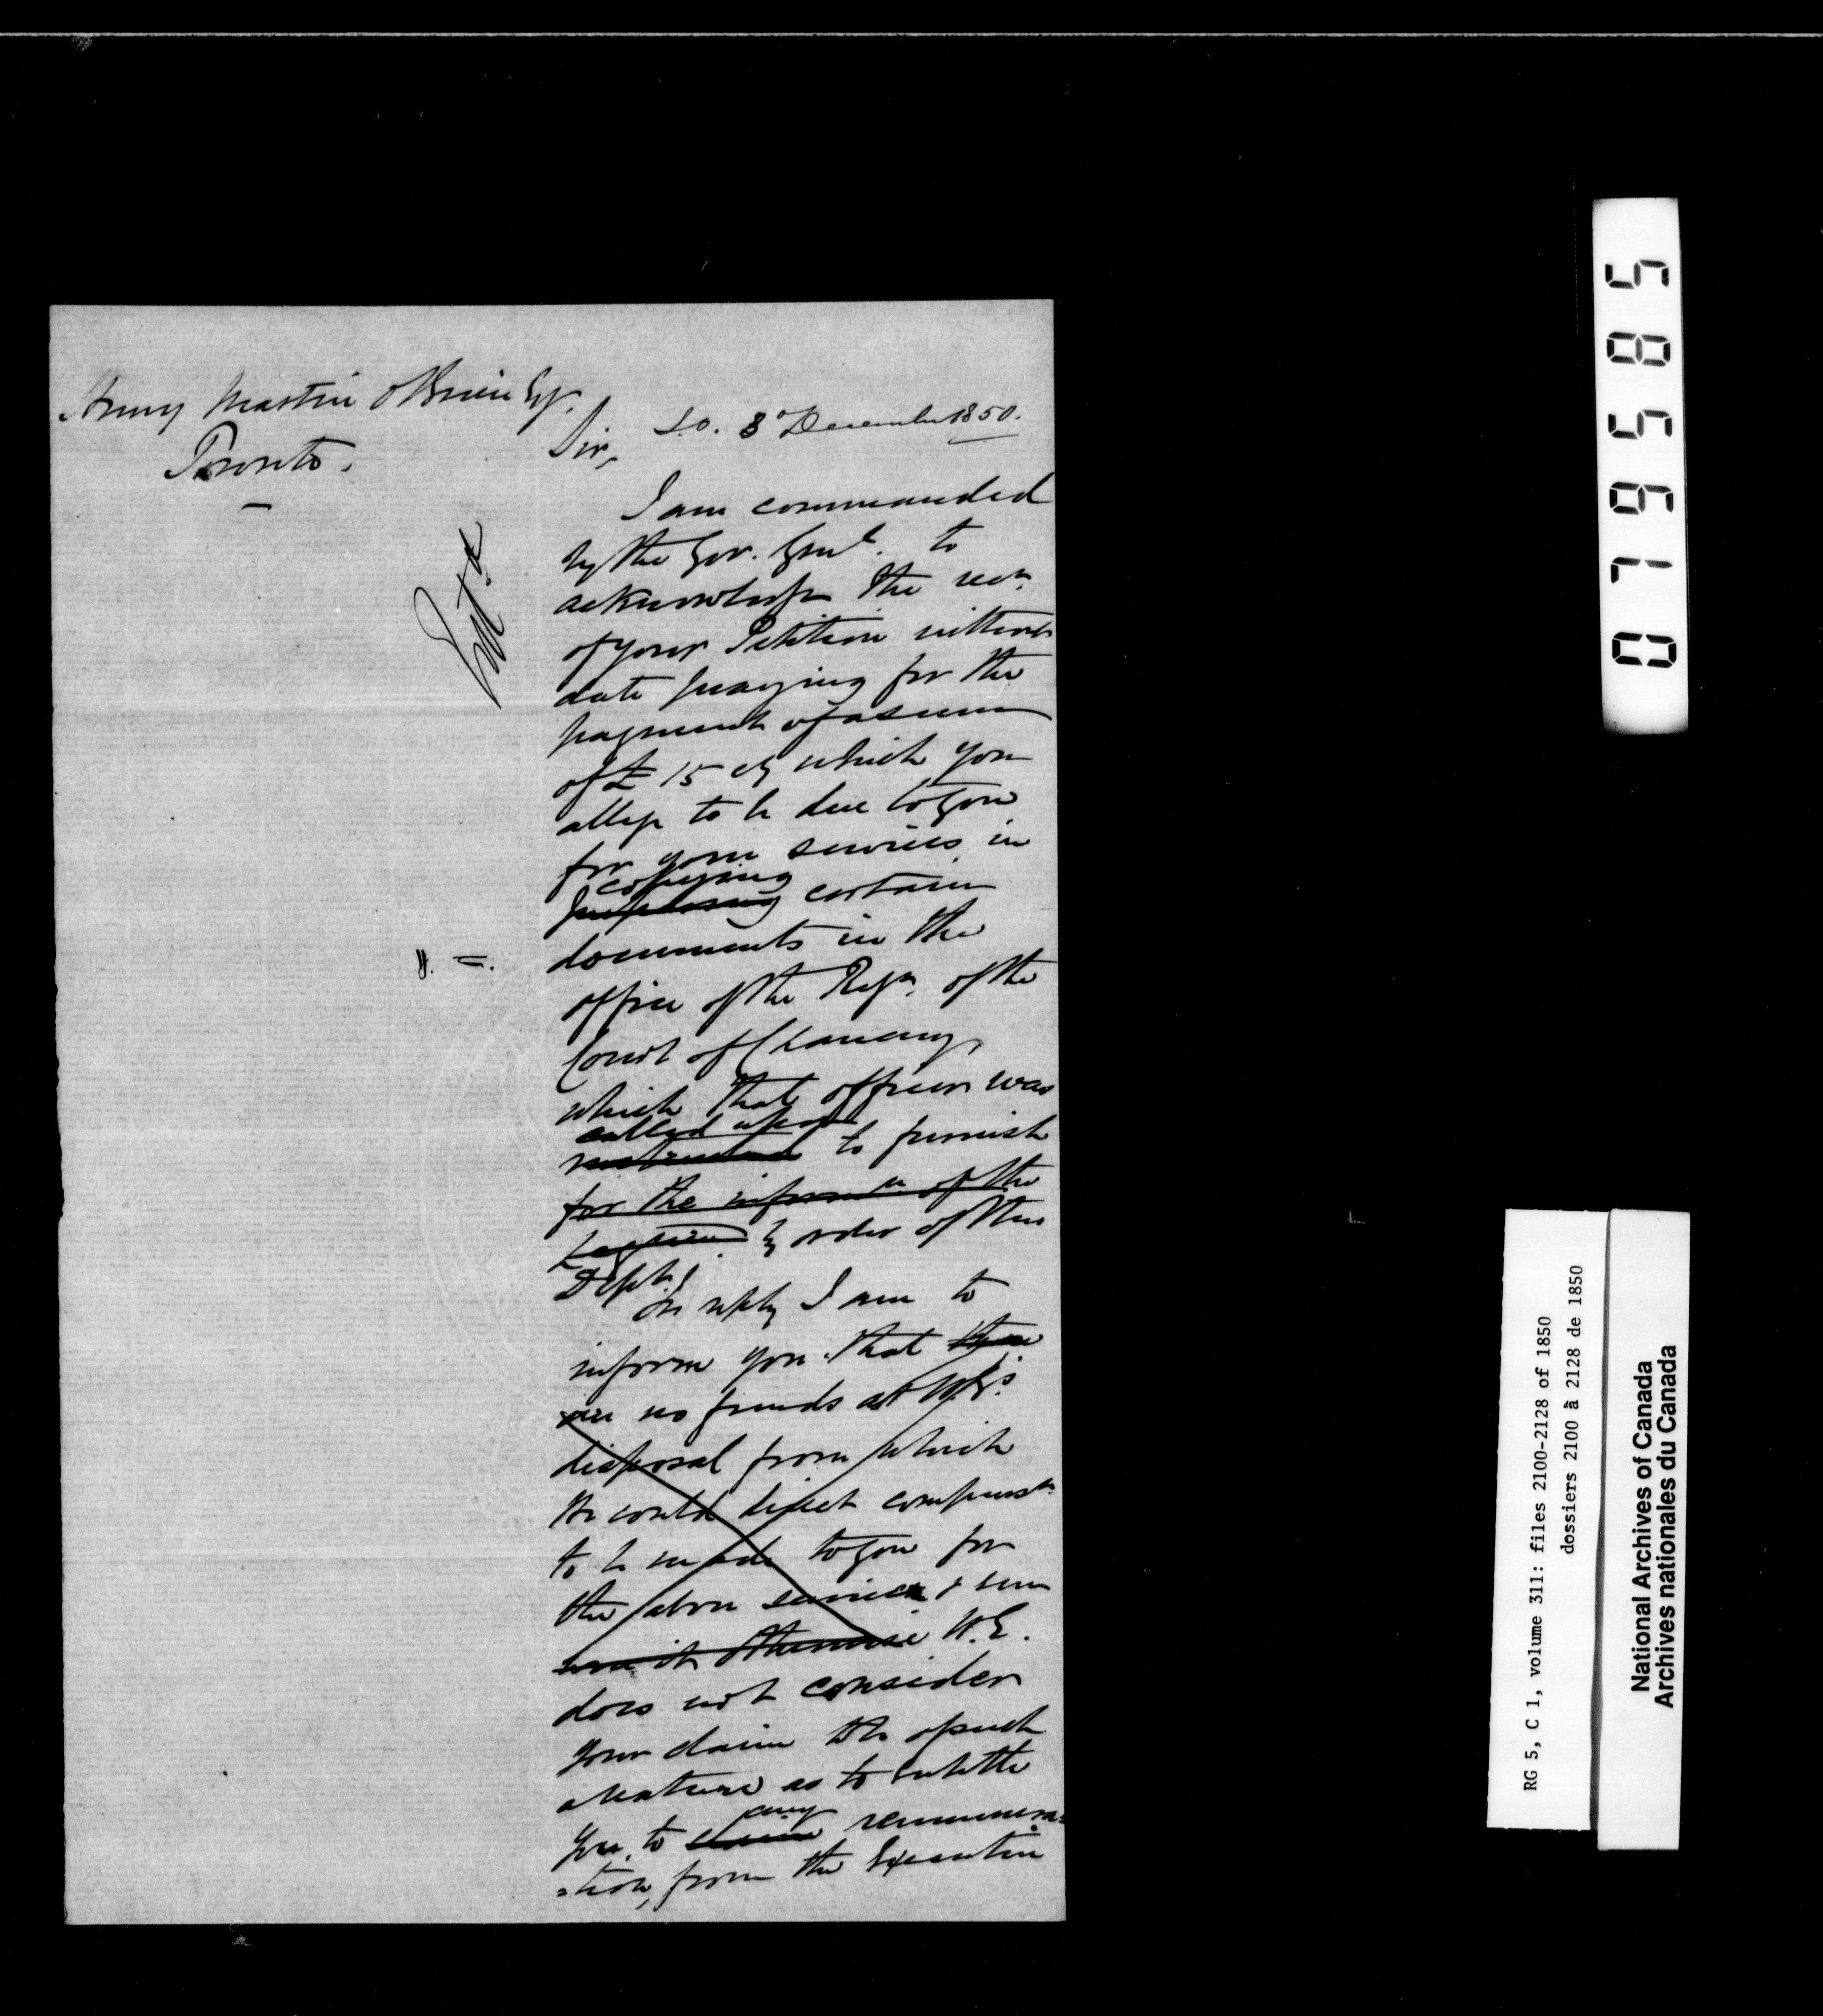 Henry Martin OBrien Esqr.
Toronto.
S.O. 8 December 1850.
Sir,
I am commanded
by the Gov. Genl. to
acknowledge the recn.
of your Petition without
date praying for the
payment of a sum
of £ 15 cy which you
allege to be due to you
for your services in
copying
certain
documents in the
office of the Regr. of the
Court of Chancery
which that officer was
called upon
to furnish
for the informn of the
by order of this
Dept.
In reply I am to
inform you that there
are no funds at H.E's
disposal from which
He could direct compensn.
to be made to you for
the above service & even
were it otherwise H.E.
does not consider
your claim to be of such
a nature as to entitle
any
you to claim remunera=
=tion, from the Executive
079585
RG 5, C 1, volume 311: files 2100-2128 of 1850
dossiers 2100 à 2128 de 1850
National Archives of Canada
Archives nationales du Canada